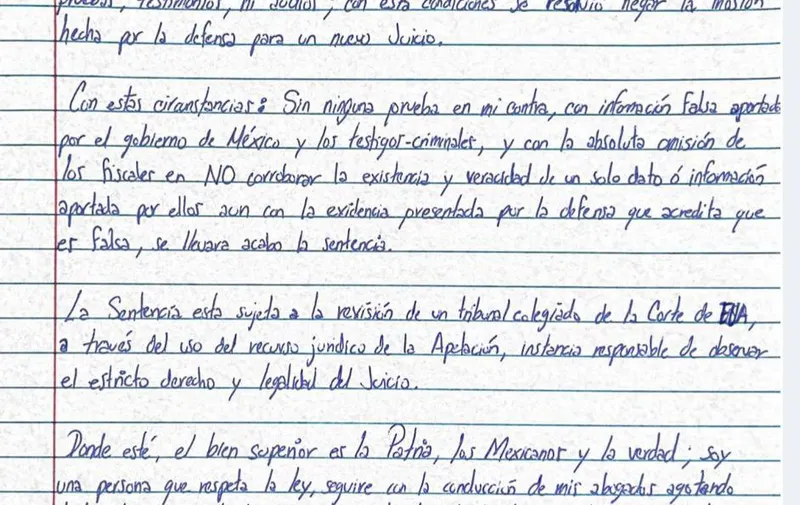 pruebas, testimonios, ni dichos; con esta condiciones se resolvio negar la mosión
hecha por la defensa para un nuevo Juicio.
Con estas ciranstancias: Sin ninguna prueba en mi contra, con información falsa aportada
por el gobierno de México y los testigos-criminales, y con la absoluta omisión de
los fiscales en NO corroborar la existencia y veracidad de un solo dato ó información
aportada por ellos aun con la evidencia presentada por la defensa que acredita que
es falsa, se llevara acabo la sentencia.
La Sentencia esta sujeta a la revisión de un tribunal colegiado de la Corte de EUA,
a través del uso del recurso jurídico de la Apelación, instancia responsable de observar
el estricto derecho y legalidad del Juicio.
Donde esté, el bien superior es la Patria, los Mexicanos y la verdad; soy
una persona que respeta la ley, seguire con la conducción de mis abogados agotando